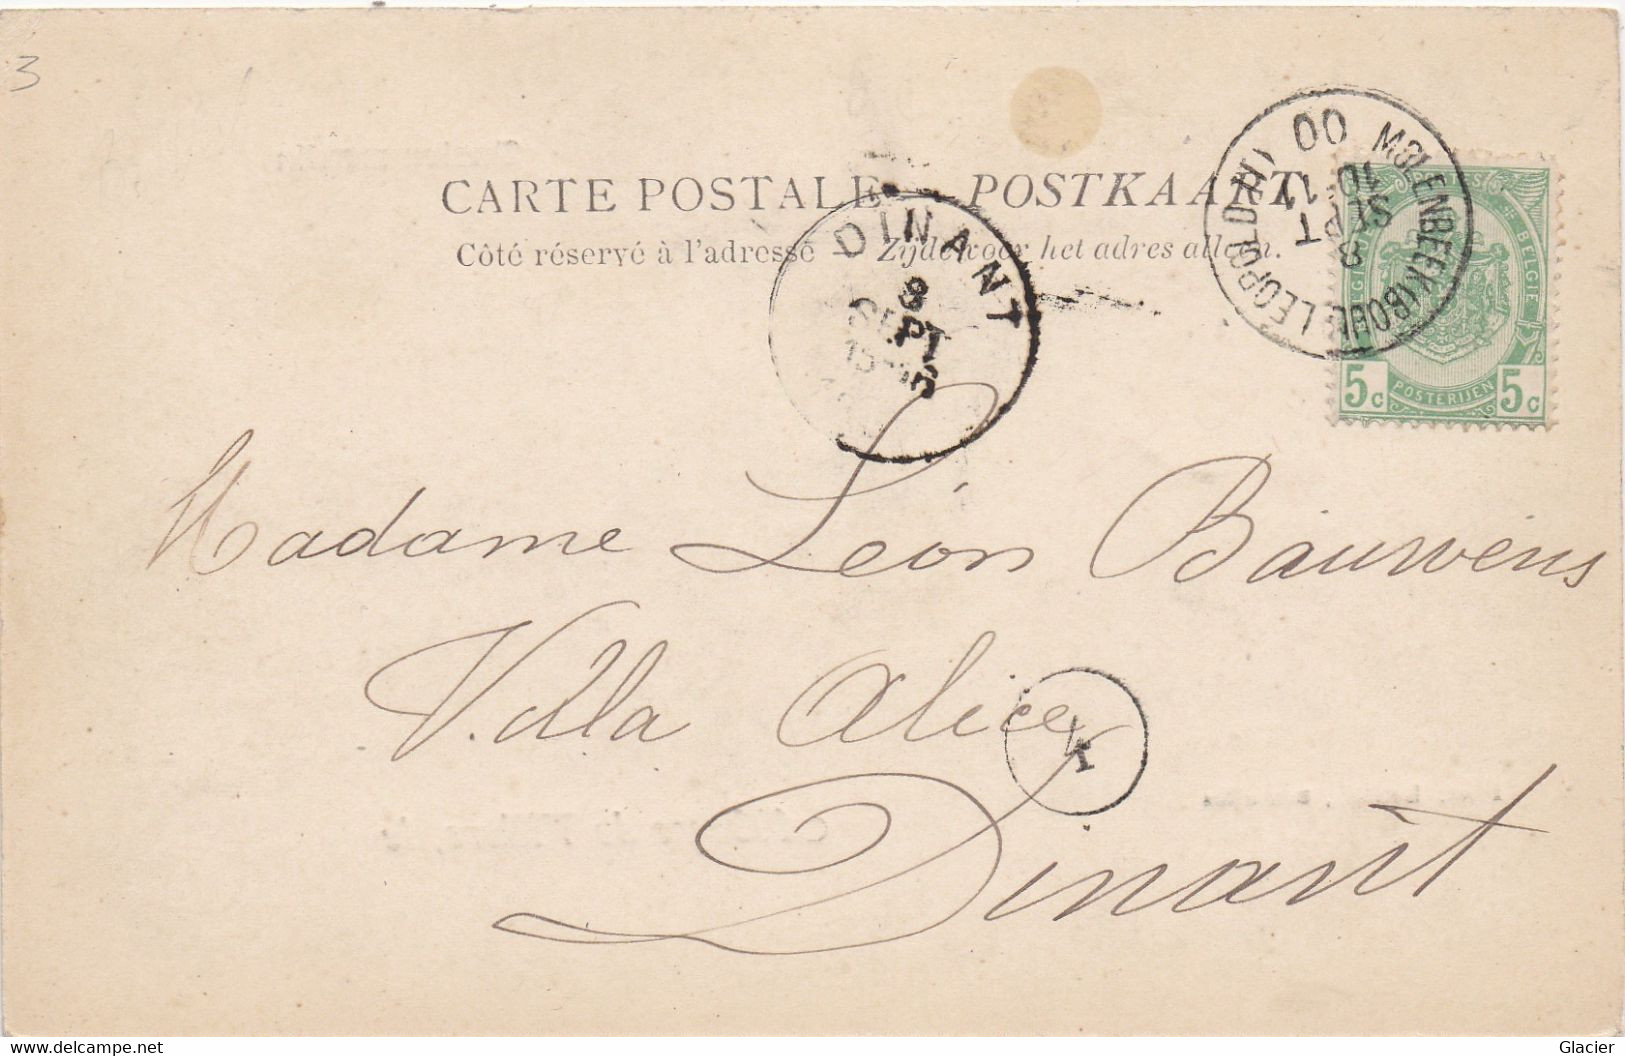 3
CARTE POSTALE POSTKAART
Côté réservé à l'adresse — Zijde voor het adres alleen.
DINANT
8
SEPT
MOLENBEEK (BOUL LEOPOLD II)
00
8
SEPT
BELGIE
5c POSTERIJEN 5c
Madame Léon Bauwens
Villa Alice
1
Dinant
Glacier
www.delcampe.net